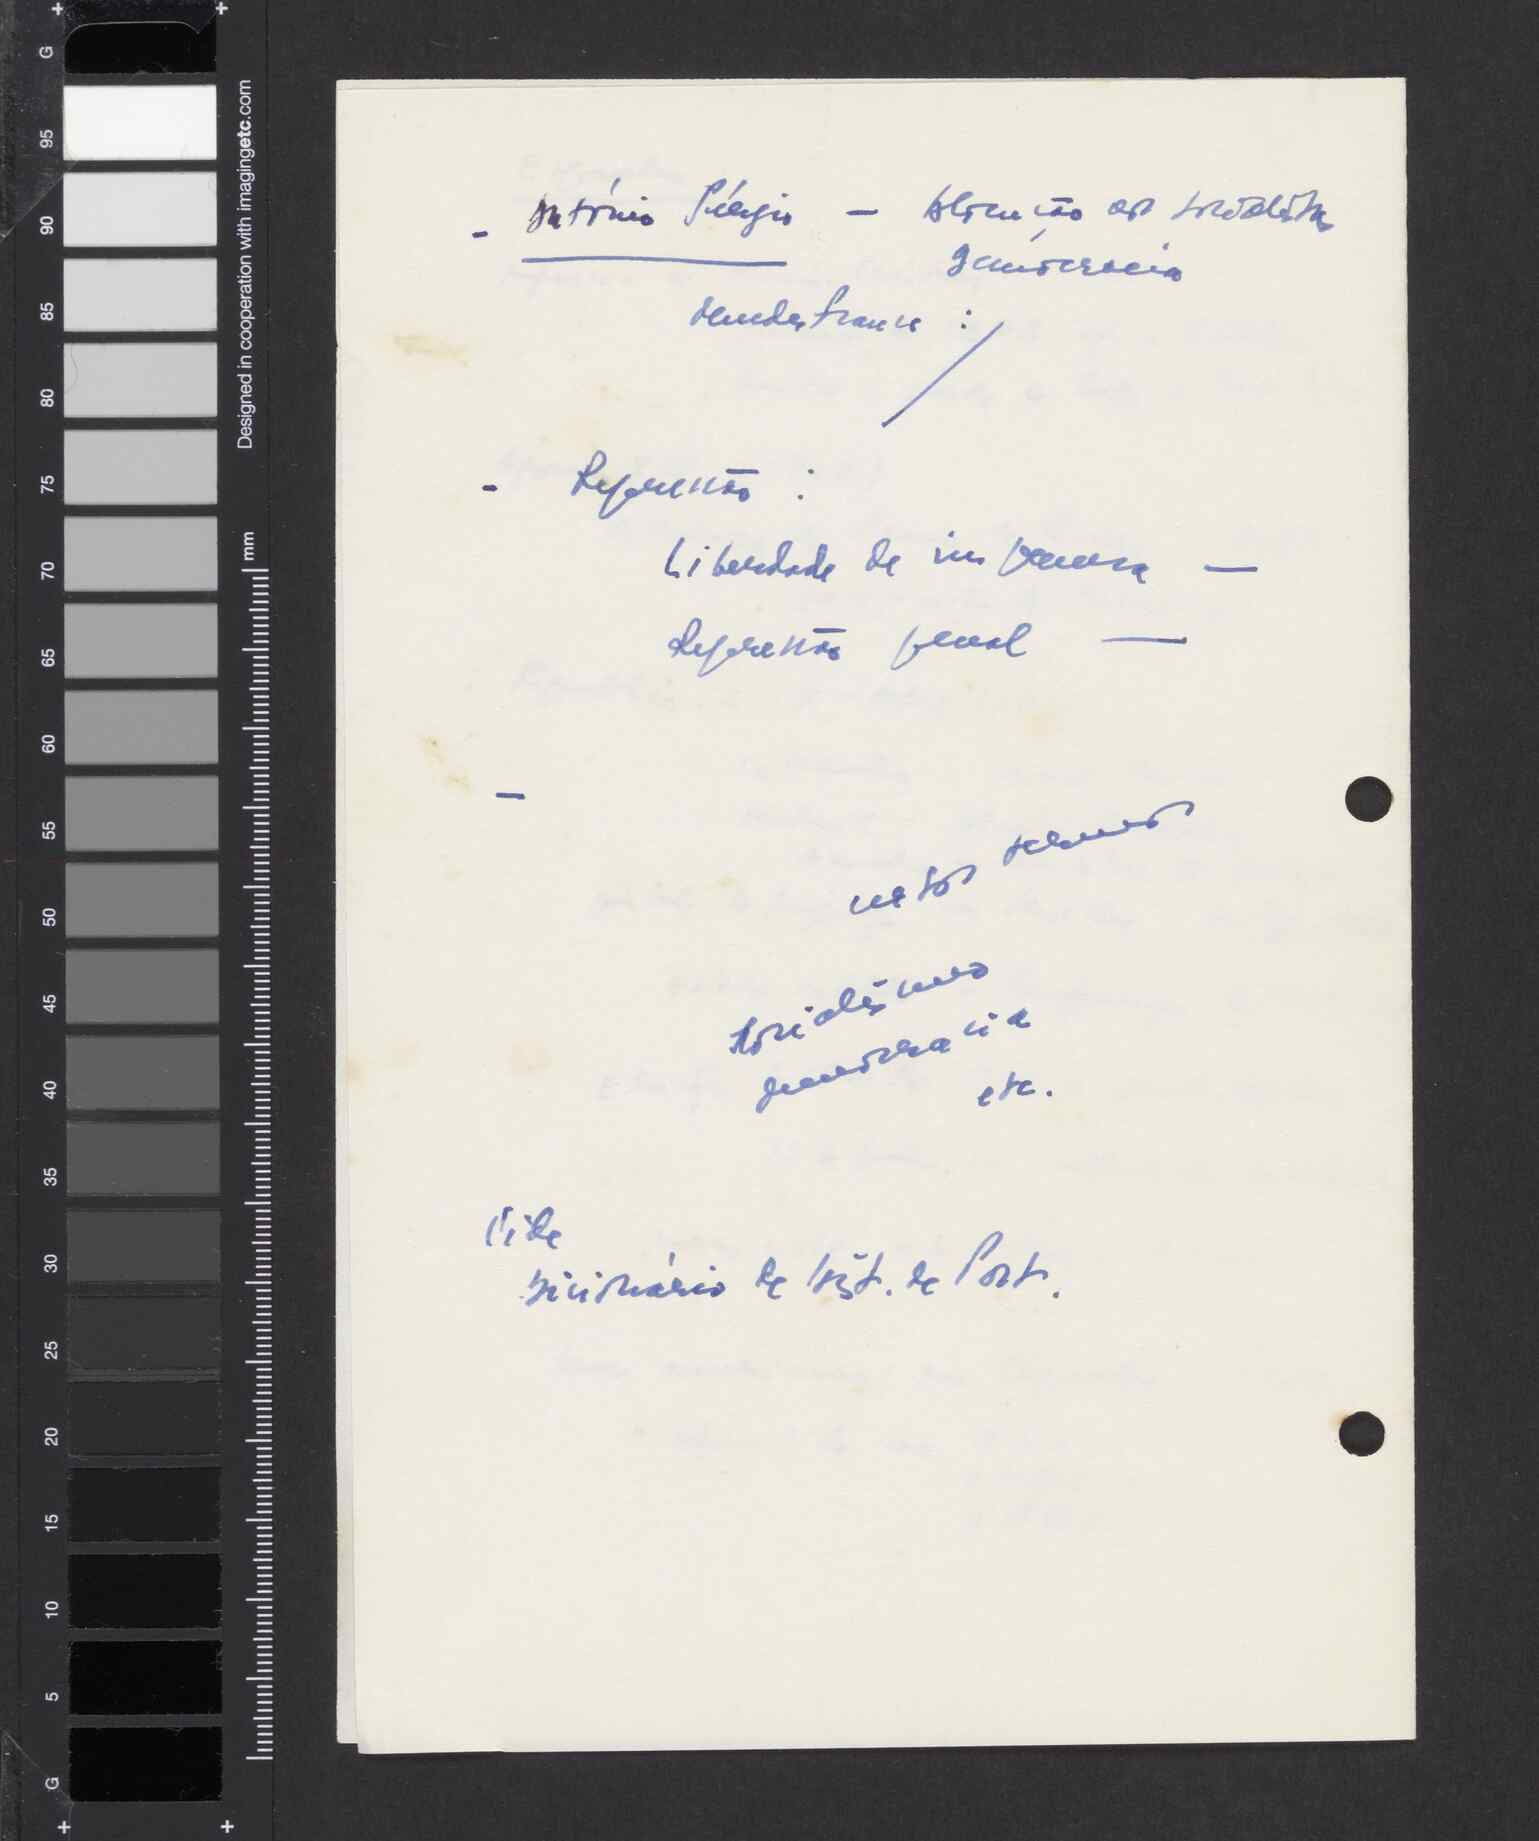 - António Sérgio — Alocução aos socialistas
democracia
Mendes France :
- Repressão :
Liberdade de imprensa —
Repressão penal —
—
nestes termos
Socialismo
democracia
etc.
Vide
Dicionário de Hist. de Port.
G
95
90
85
80
75
70
65
60
55
50
45
40
35
30
25
20
15
10
5
G
Designed in cooperation with imagingetc.com
mm